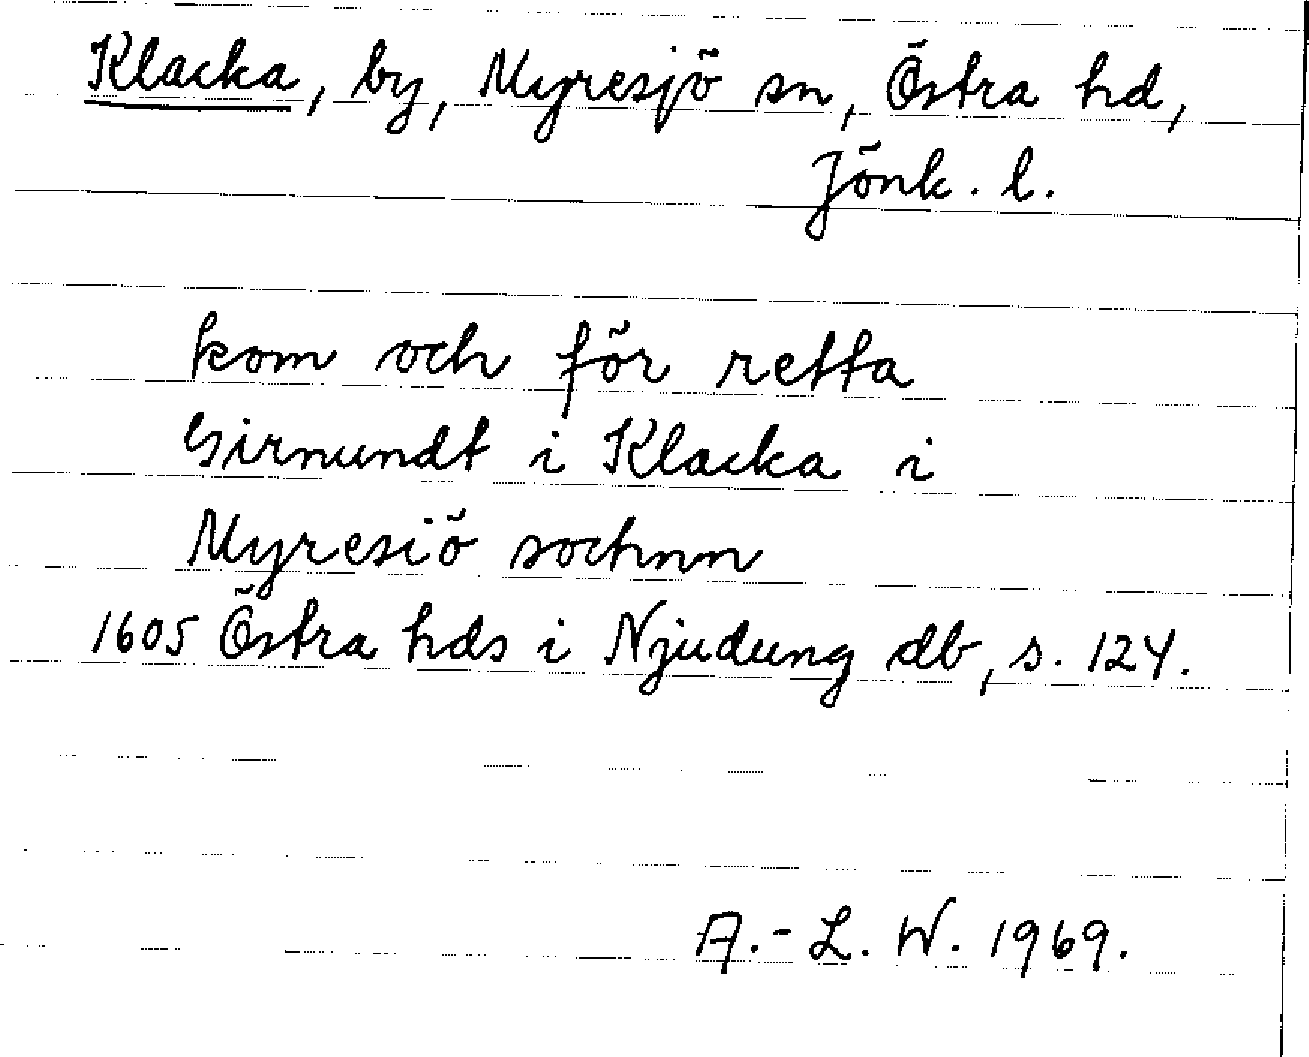 Klacka, by, Myresjö sn, Östra hd,
Jönk. l.
kom och för retta
Girmundt i Klacka i
Myresiö sochnn
1605 Östra hds i Njudung db, s. 124.
A.-L. W. 1969.